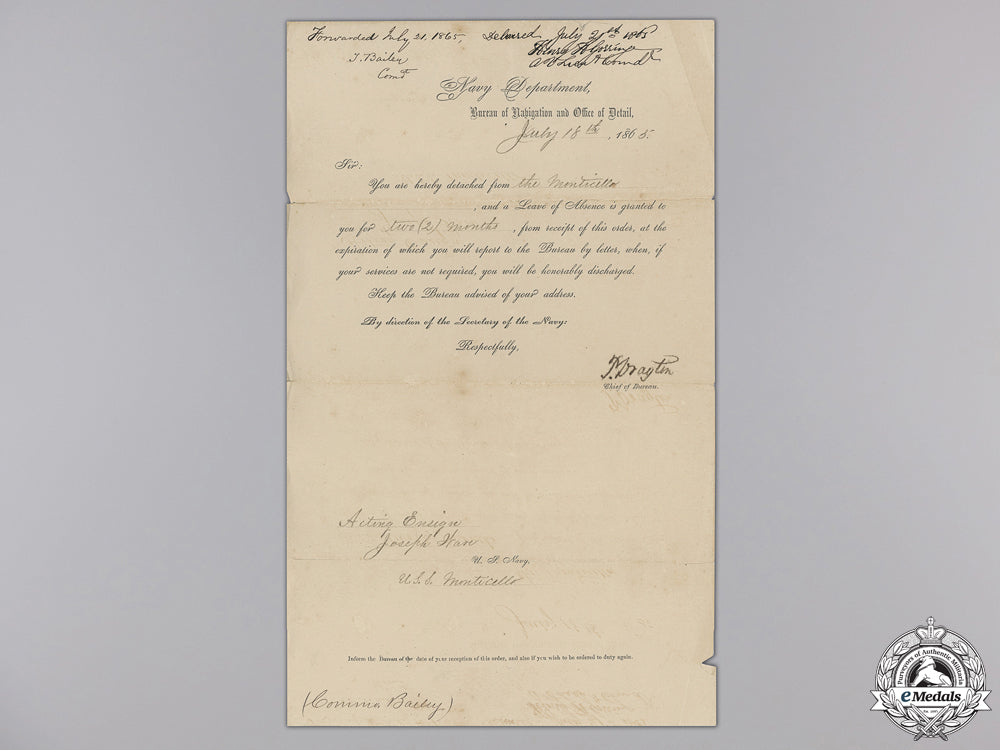 Forwarded July 21, 1865,
T. Bailey
Comdt
Delivered July 21st 1865
Henry H Gorringe
A V Lieut Comdr
Navy Department,
Bureau of Navigation and Office of Detail,
July 18th, 1865.
Sir:
You are hereby detached from the Monticello
, and a Leave of Absence is granted to
you for two (2) months, from receipt of this order, at the
expiration of which you will report to the Bureau by letter, when, if
your services are not required, you will be honorably discharged.
Keep the Bureau advised of your address.
By direction of the Secretary of the Navy:
Respectfully,
P. Drayton
Chief of Bureau.
Acting Ensign
Joseph Ware
U. S. Navy,
U.S.S. Monticello
Inform the Bureau of the date of your reception of this order, and also if you wish to be ordered to duty again.
(Commo Bailey.)
Purveyors of Authentic Militaria
eMedals